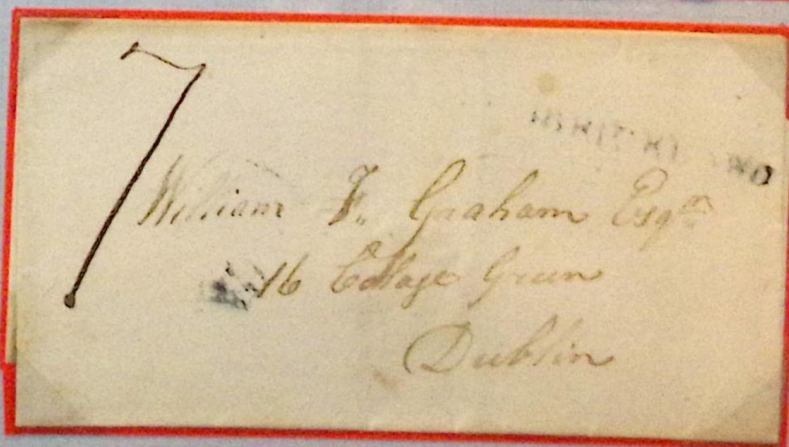 7
William F. Graham Esqre
16 College Green
Dublin